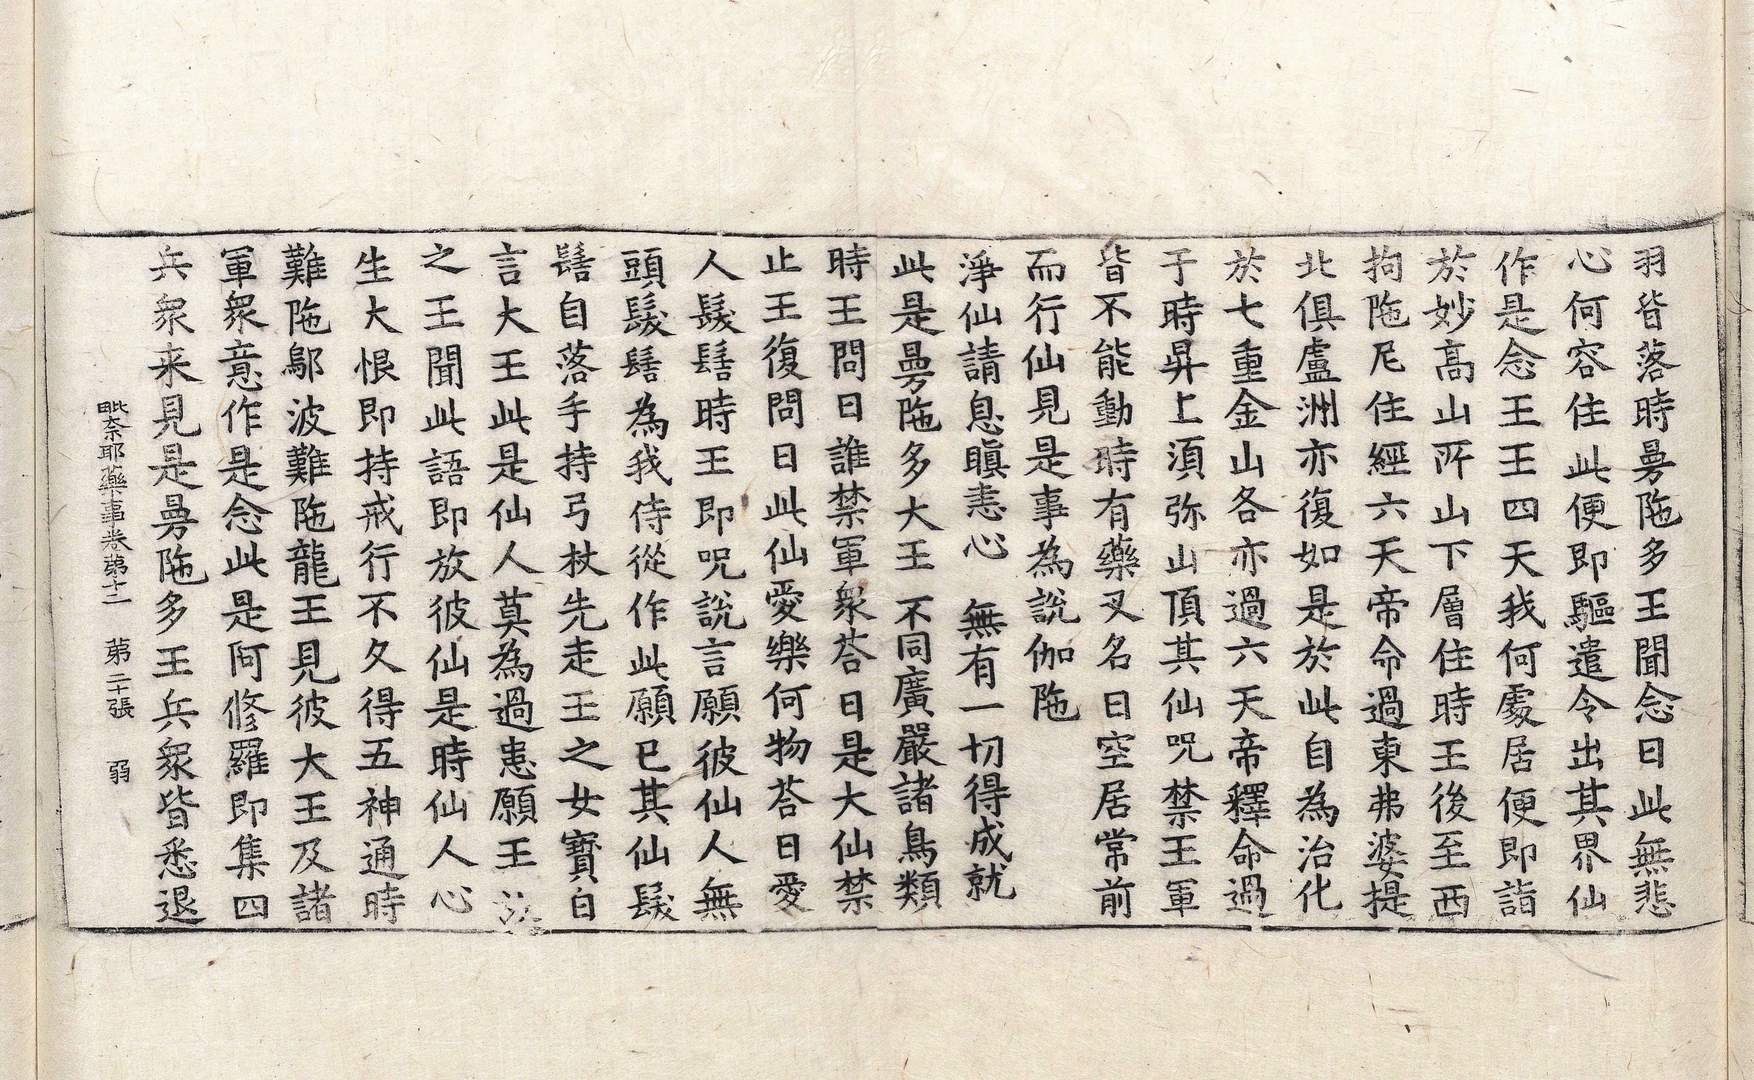 羽皆落時曼陁多王聞念曰此無悲
心何容住此便即驅遣令出其界仙
作是念王王四天我何處居便即詣
於妙高山所山下層住時王後至西
拘陁尼住經六天帝命過東弗婆提
北俱盧洲亦復如是於此自為治化
於七重金山各亦過六天帝釋命過
于時昇上湏弥山頂其仙呪禁王軍
皆不能動時有藥叉名曰空居常前
而行仙見是事為說伽陁
淨仙請息瞋恚心　無有一切得成就
此是曼陁多大王　不同廣嚴諸鳥類
時王問曰誰禁軍衆荅曰是大仙禁
止王復問曰此仙愛樂何物荅曰愛
人髮髻時王即呪說言願彼仙人無
頭髮髻為我侍從作此願已其仙髮
髻自落手持弓杖先走王之女寶白
言大王此是仙人莫為過恚願王放
之王聞此語即放彼仙是時仙人心
生大恨即持戒行不久得五神通時
難陁鄔波難陁龍王見彼大王及諸
軍衆意作是念此是阿修羅即集四
兵衆来見是曼陁多王兵衆皆悉退
毗奈耶藥事卷第十二　第二十張　弱